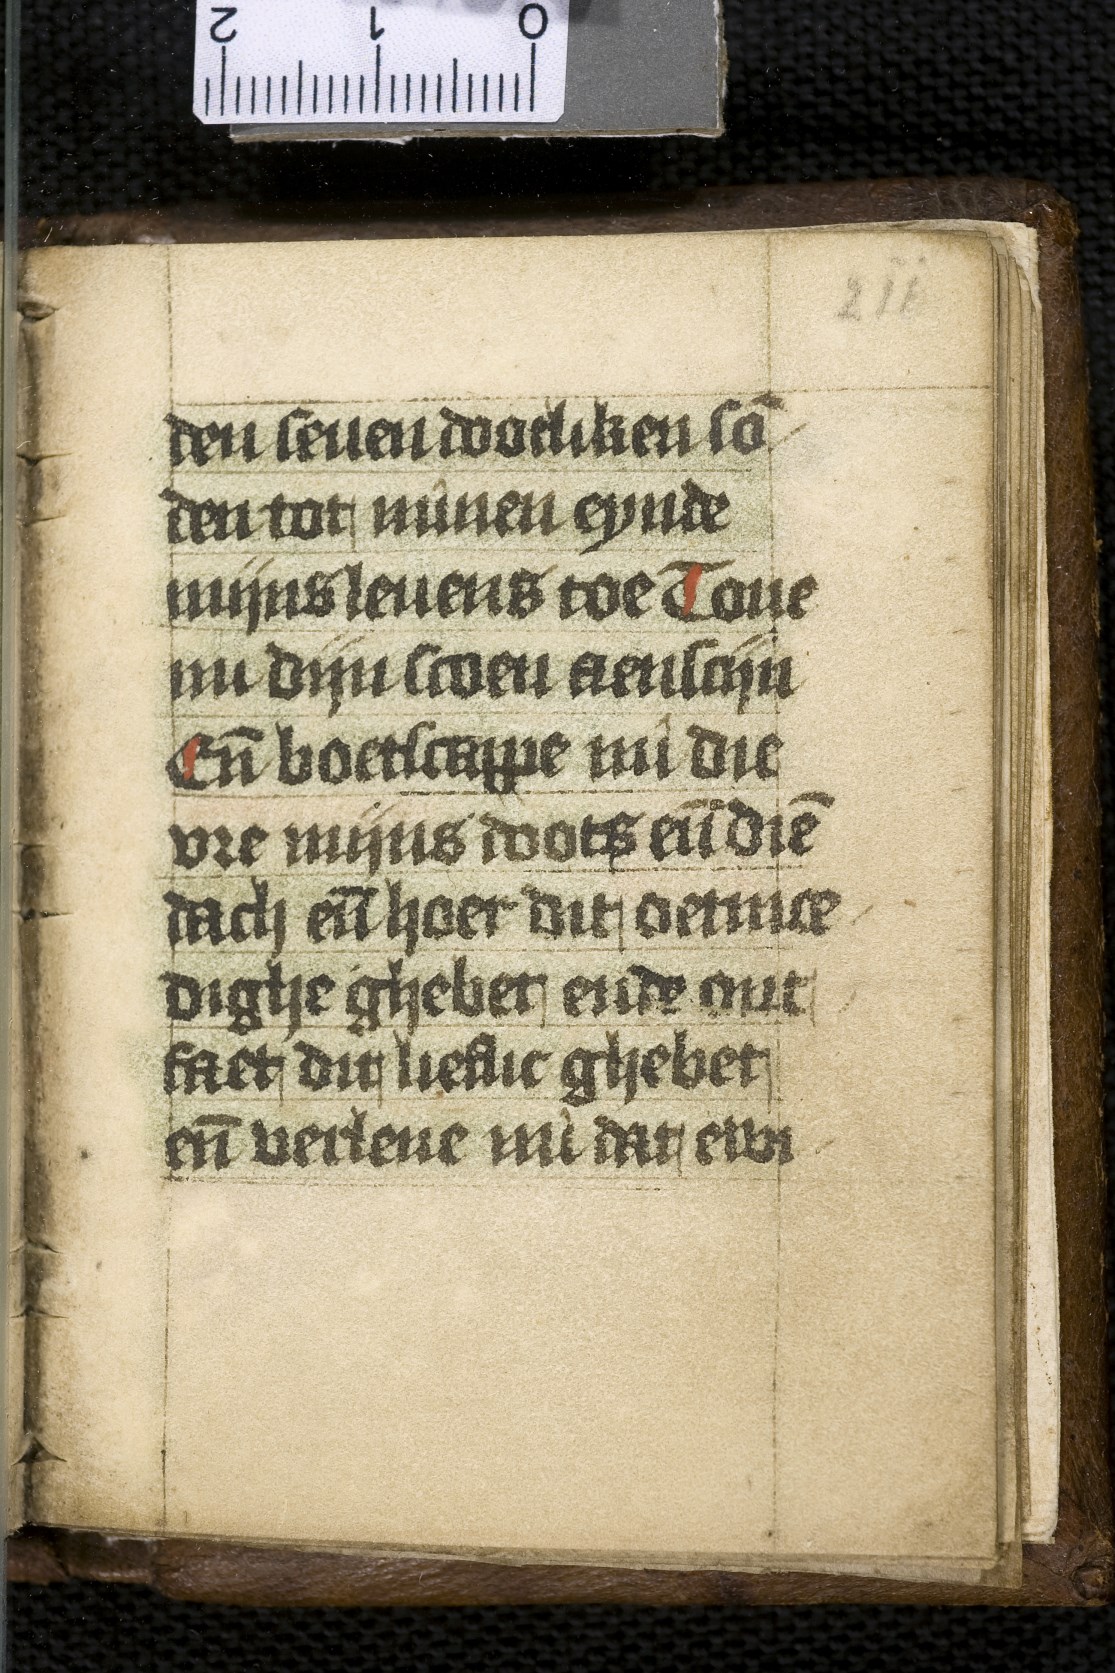 2 1 0
211
den seuen dootliken sō
den tot minen eynde
mijns leuens toe Toue
mi dijn scoen aenscijn
Eñ boetscappe mi die
vre mijns doots eñ diē
dach eñ hoer dit oetmoe
dighe ghebet ende ont
faet dit lieflic ghebet
eñ verlene mi dat ewi